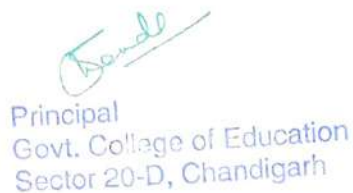 Principal
Govt. College of Education
Sector 20-D, Chandigarh